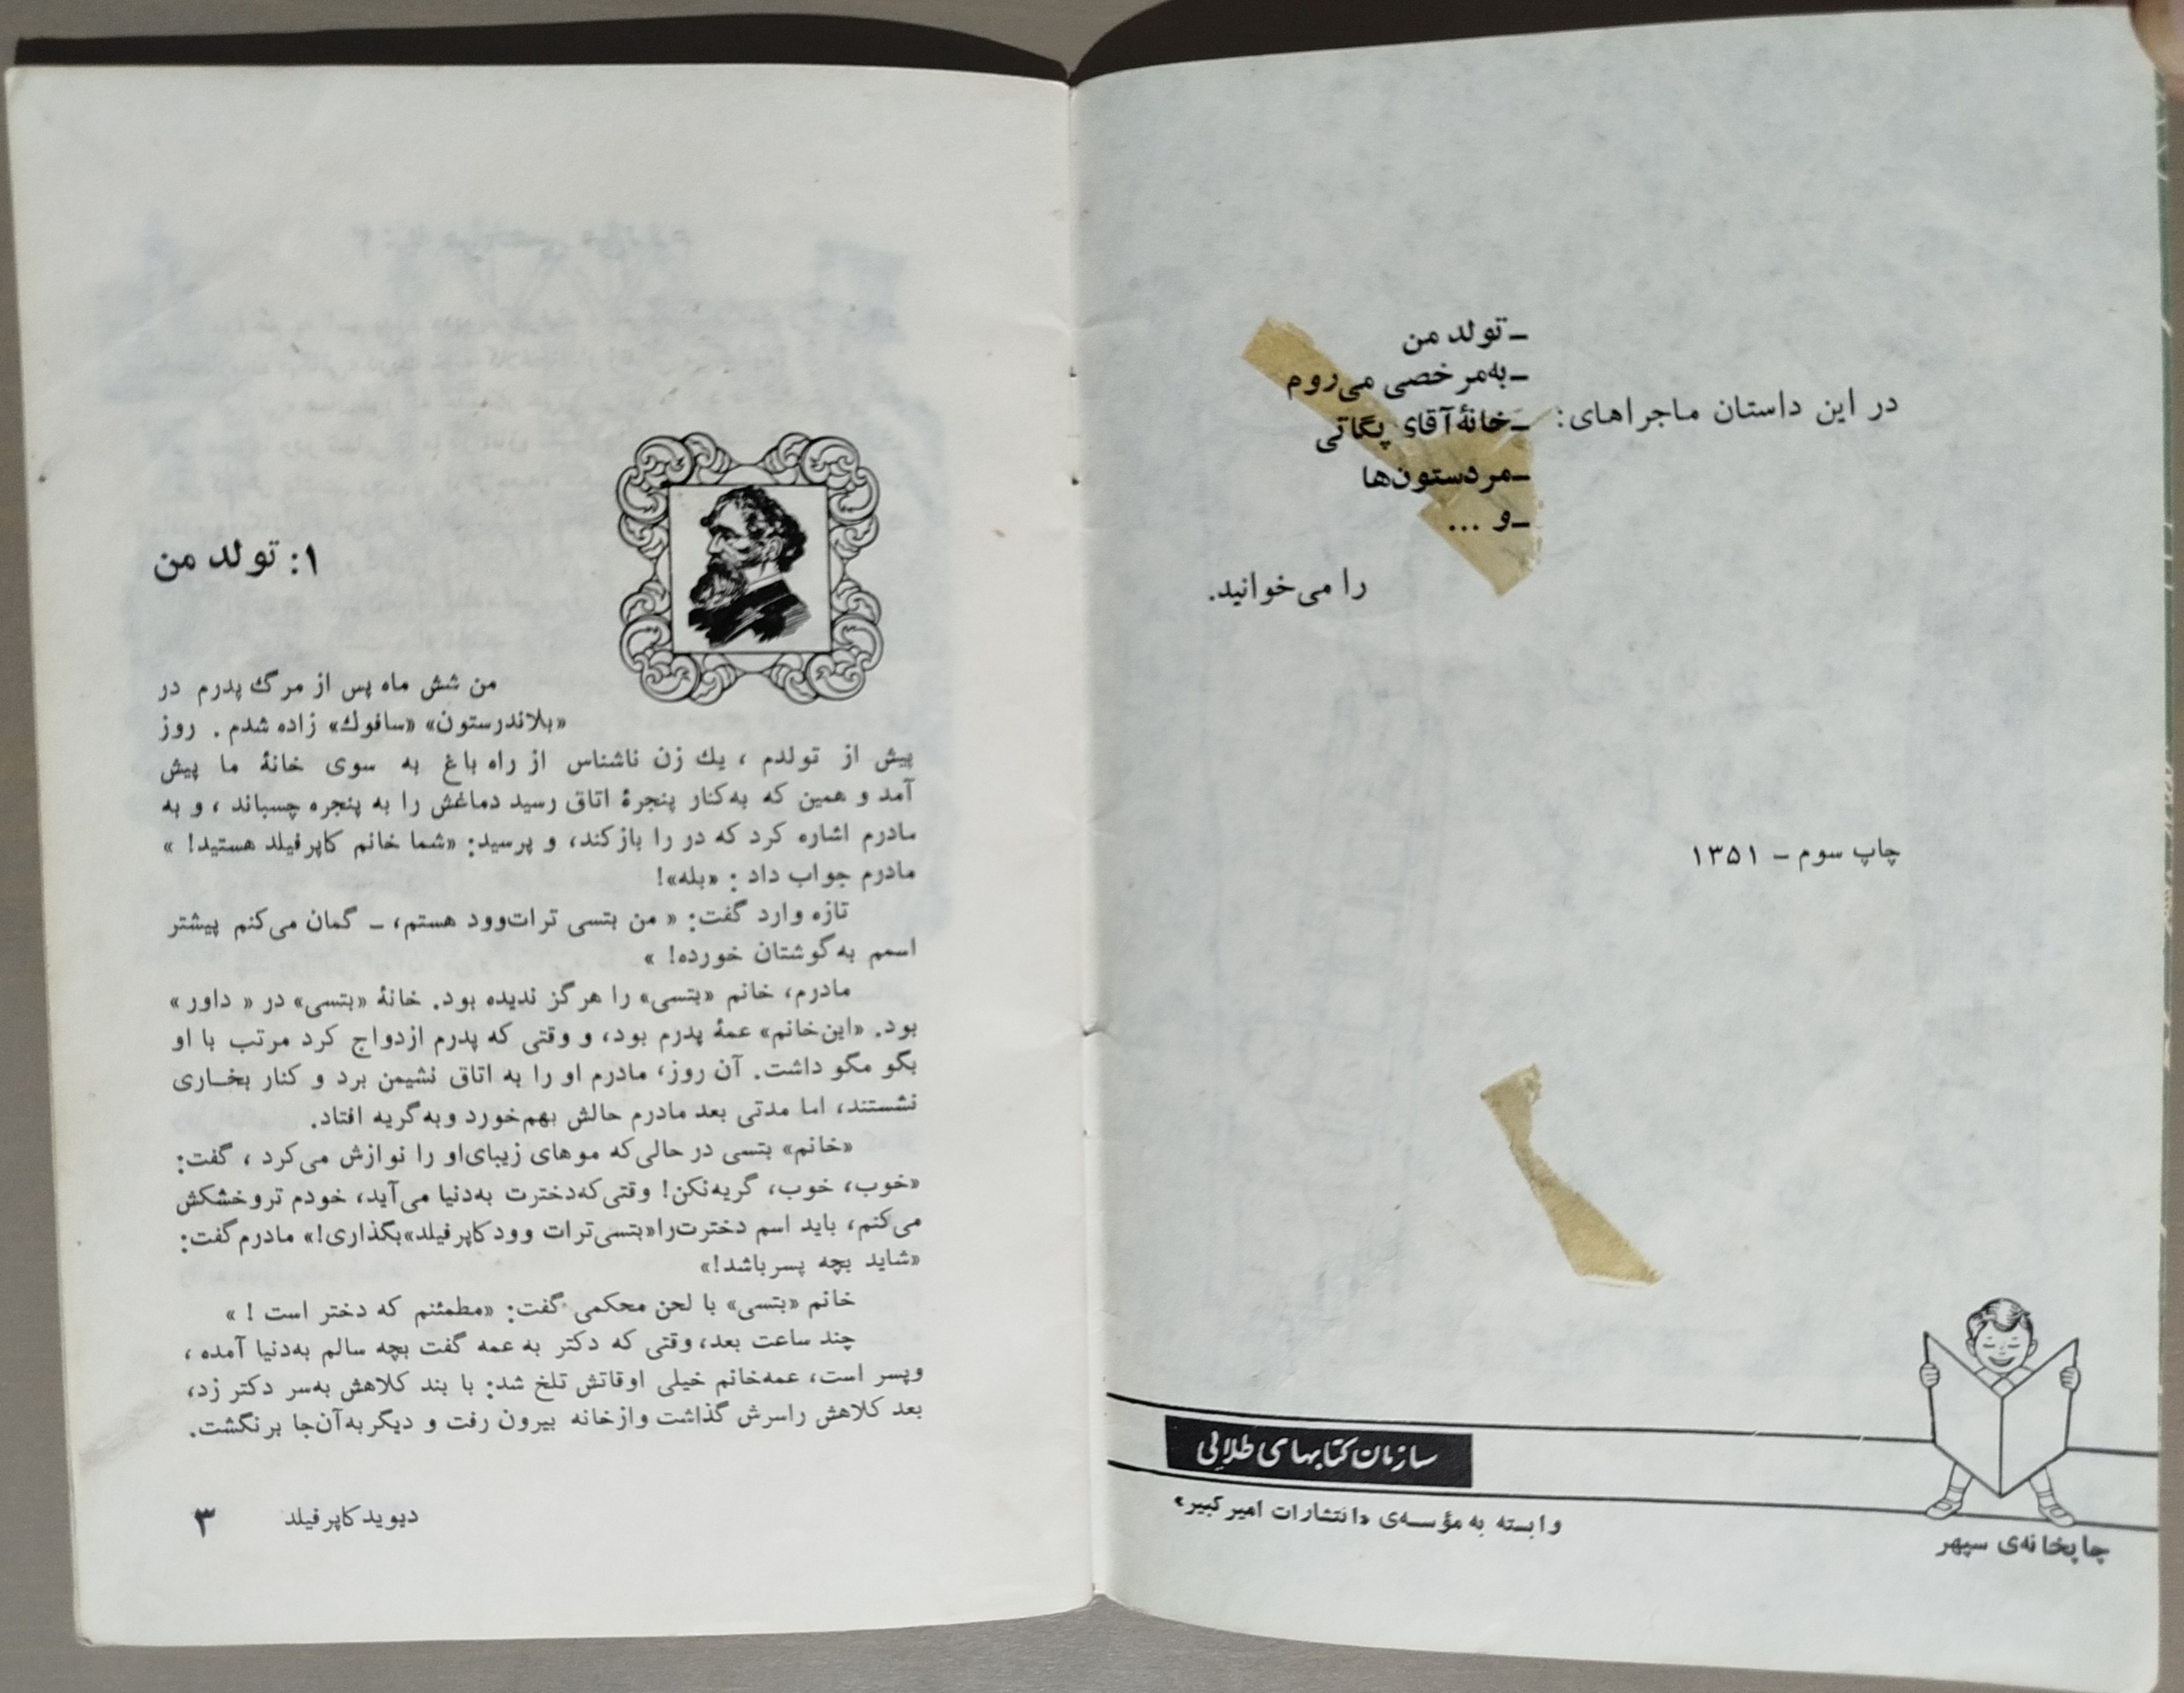 در این داستان ماجراهای:
ـ تولد من
ـ به‌مرخصی می‌روم
ـ خانهٔ آقای پگاتی
ـ مردستون‌ها
ـ و ...
را می‌خوانید.
چاپ سوم ـ ۱۳۵۱
سازمان کتابهای طلائی
وابسته به مؤسسه‌ی «انتشارات امیرکبیر»
چاپخانه‌ی سپهر
۱: تولد من
من شش ماه پس از مرگ پدرم در
«بلاندرستون» «سافوك» زاده شدم . روز
پیش از تولدم ، یك زن ناشناس از راه باغ به سوی خانهٔ ما پیش
آمد و همین که به‌کنار پنجرهٔ اتاق رسید دماغش را به پنجره چسباند ، و به
مادرم اشاره کرد که در را بازکند، و پرسید: «شما خانم کاپرفیلد هستید! »
مادرم جواب داد : «بله»!
تازه وارد گفت: « من بتسی ترات‌وود هستم، ـ گمان می‌کنم پیشتر
اسمم به‌گوشتان خورده! »
مادرم، خانم «بتسی» را هرگز ندیده بود. خانهٔ «بتسی» در « داور »
بود. «این‌خانم» عمهٔ پدرم بود، و وقتی که پدرم ازدواج کرد مرتب با او
بگو مگو داشت. آن روز، مادرم او را به اتاق نشیمن برد و کنار بخـاری
نشستند، اما مدتی بعد مادرم حالش بهم‌خورد وبه‌گریه افتاد.
«خانم» بتسی در حالی‌که موهای زیبای‌او را نوازش می‌کرد ، گفت:
«خوب، خوب، گریه‌نکن! وقتی‌که‌دخترت به‌دنیا می‌آید، خودم تروخشکش
می‌کنم، باید اسم دخترت‌را«بتسی‌ترات وودکاپرفیلد»بگذاری!» مادرم‌گفت:
«شاید بچه پسرباشد!»
خانم «بتسی» با لحن محکمی گفت: «مطمئنم که دختر است ! »
چند ساعت بعد، وقتی که دکتر به عمه گفت بچه سالم به‌دنیا آمده ،
وپسر است، عمه‌خانم خیلی اوقاتش تلخ شد: با بند کلاهش به‌سر دکتر زد،
بعد کلاهش راسرش گذاشت وازخانه بیرون رفت و دیگربه‌آن‌جا برنگشت.
دیویدکاپرفیلد ۳